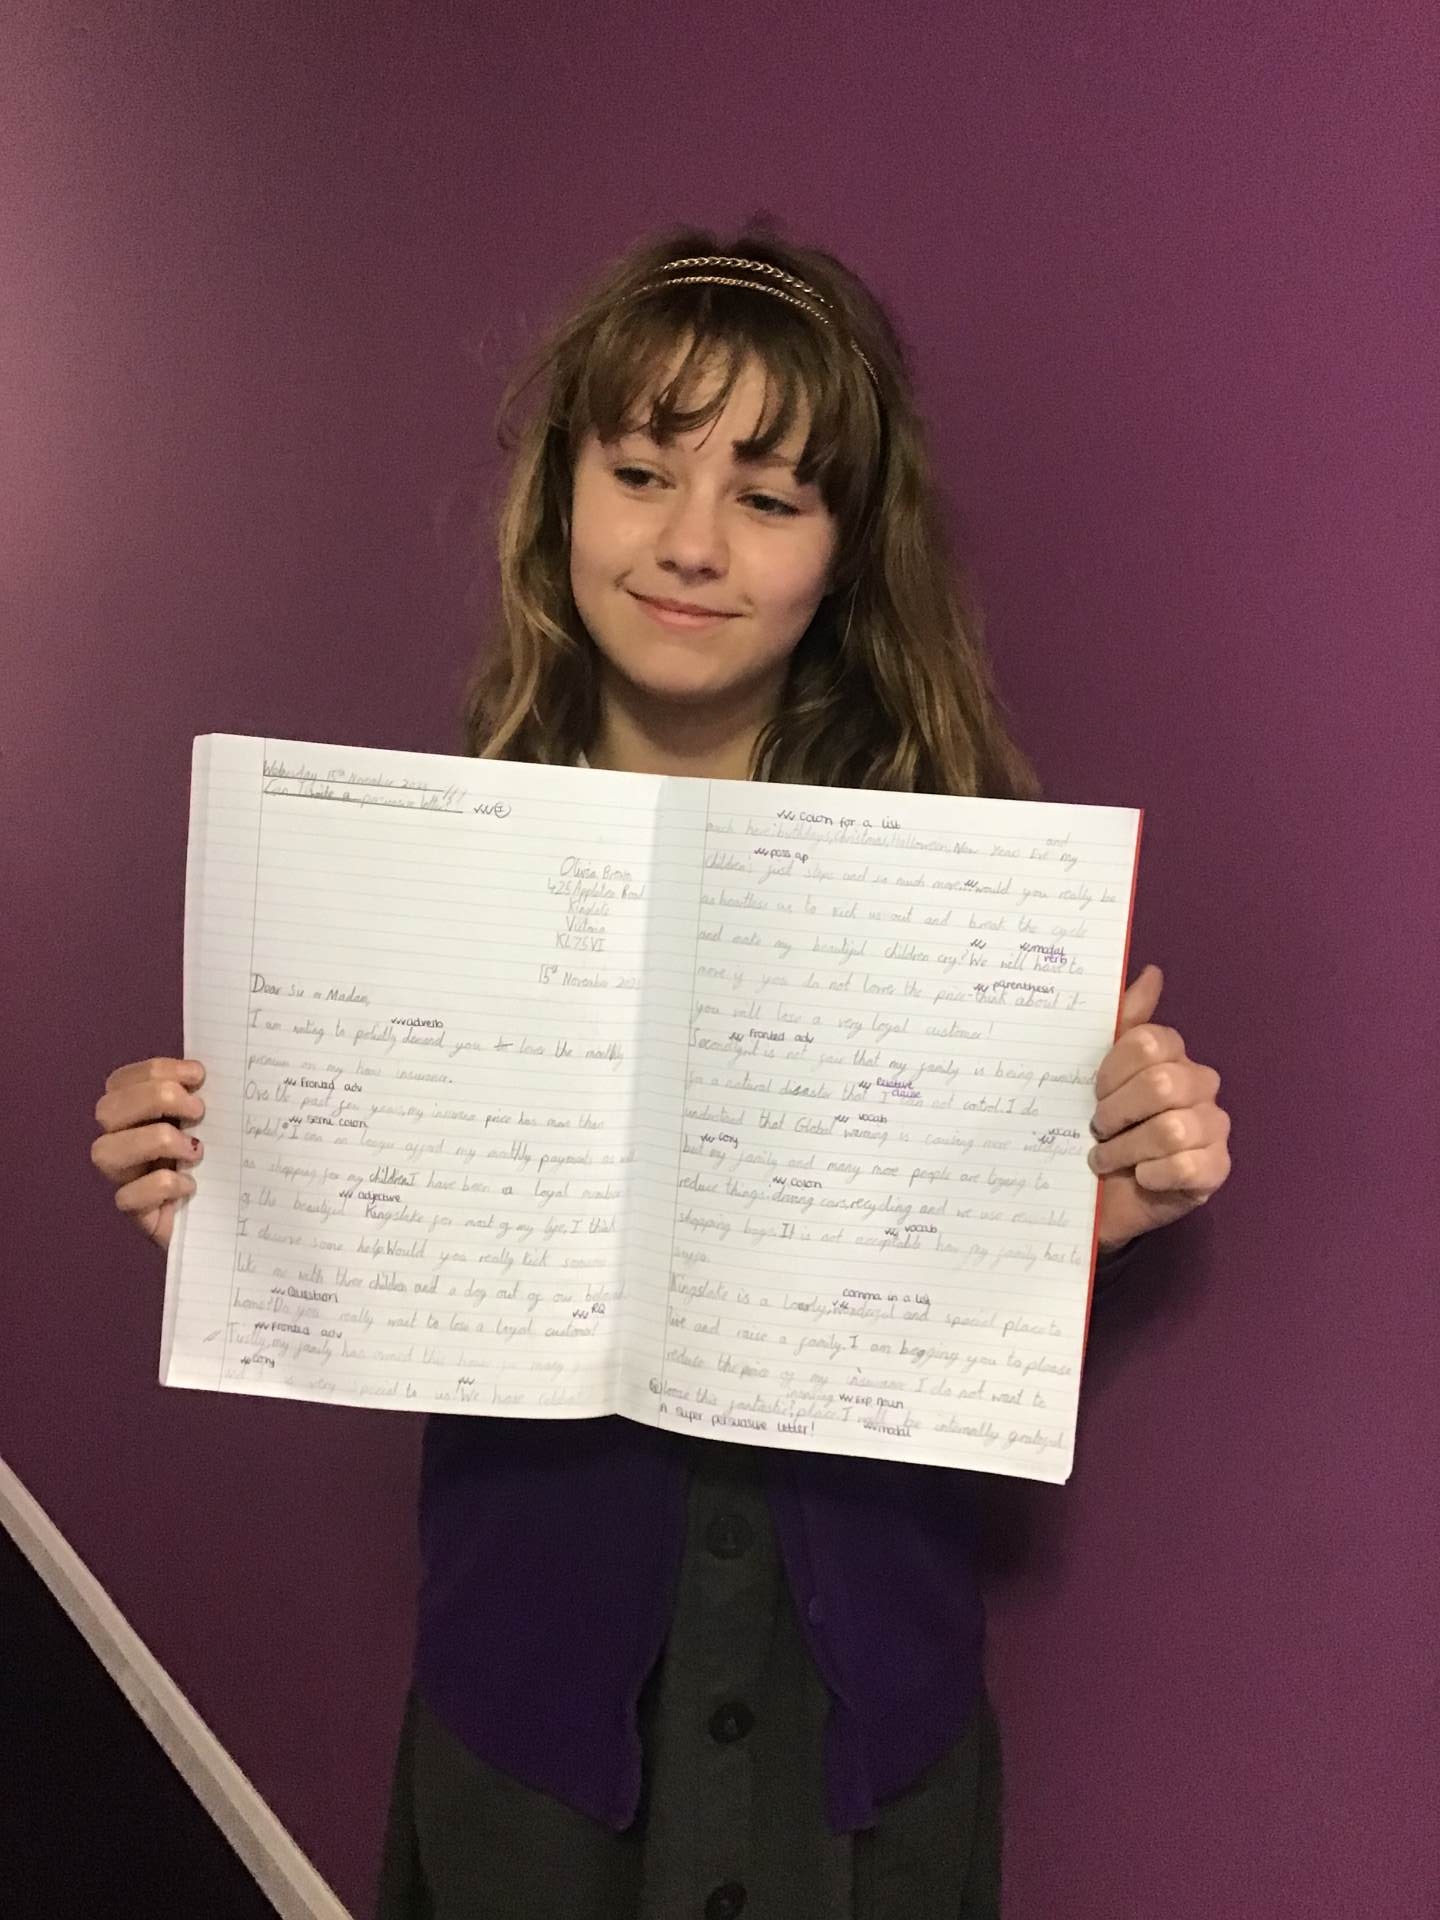 Wednesday 15th November 2023
Can I write a persuasive letter?
Olivia Brown
425 Appleton Road
Kinglake
Victoria
KL75VI
15th November
Dear Sir or Madam,
adverb
I am writing to politely demand you lower the monthly
premium on my home insurance.
Fronted adv
Over the past few years, my insurance price has more than
semi colon
I can no longer afford my monthly payments as well
as shopping for my children. I have been a loyal member
adjective
of the beautiful Kingslake for most of my life, I think
I deserve some help. Would you really kick someone
like me with three children and a dog out of our beloved
Question
RQ
home? Do you really want to lose a loyal customer
Fronted adv
Firstly, my family has owned this house for many
conj
is very special to us! We have
colon for a list
and
much here: birthdays, Christmas, Halloween, New Years Eve my
poss ap
children's first steps and so much more... would you really be
as heartless as to kick us out and break the cycle
modal verb
and make my beautiful children cry? We will have to
parenthesis
move if you do not lower the price - think about it -
you will lose a very loyal customer!
Fronted adv
Secondly, it is not fair that my family is being punished
Relative clause
for a natural disaster that I can not control. I do
vocab
vocab
understand that Global warming is causing more
conj
but my family and many more people are trying to
colon
reduce things: driving cars, recycling and we use reusable
vocab
shopping bags. It is not acceptable how my family has to
comma in a list
Kingslake is a lovely, wonderful and special place to
live and raise a family. I am begging you to please
reduce the price of my insurance I do not want to
Exp. noun
loose this fantastic place. I will be internally grateful.
modal
A super persuasive letter!